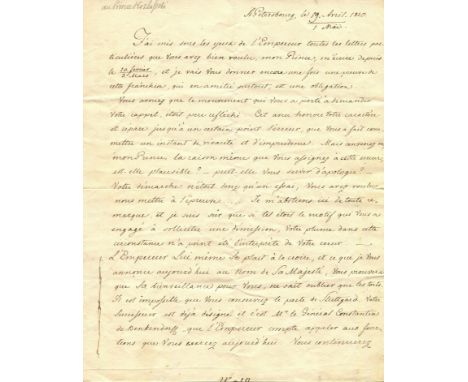 au Prince Kozlofski
St Petersbourg, le 19 Avril. 1820
1 Mai.
J'ai mis sous les yeux de l'Empereur toutes les lettres par-
ticulières que Vous avez bien voulu, mon Prince, m'écrire depuis
le 18 février / 2 Mars, et je vais Vous donner encore une fois une preuve de
cette franchise qui en amitié surtout est une obligation.
Vous avouez que le mouvement qui Vous a porté à demander
Votre rappel, était peu réfléchi. Cet aveu honore Votre caractère
et répare jusqu'à un certain point l'erreur, que Vous a fait com-
mettre un instant de vivacité et d'imprudence. Mais avouez aussi,
mon Prince, la raison même que Vous assignez à cette erreur,
est-elle plausible? – peut-elle Vous servir d'apologie? –
Votre démarche n'était donc qu'un essai, Vous avez voulu
nous mettre à l'épreuve . . . Je m'abstiens ici de toute re-
marque, et je suis sûr que si tel étoit le motif qui Vous a
engagé à solliciter une démission, Votre plume dans cette
circonstance n'a point été l'interprète de Votre coeur. —
L'Empereur Lui même Se plait à le croire, et ce que je Vous
annonce aujourd'hui au Nom de Sa Majesté, Vous prouvera
que Sa bienveillance pour Vous, ne sait oublier que les torts.
Il est impossible que Vous conserviez le poste de Stuttgard. Votre
Successeur est déjà désigné et c'est Mr le Général Constantin
de Benkendorff que l'Empereur compte appeler aux fonc-
tions que Vous exercez aujourd'hui. Vous continuerez